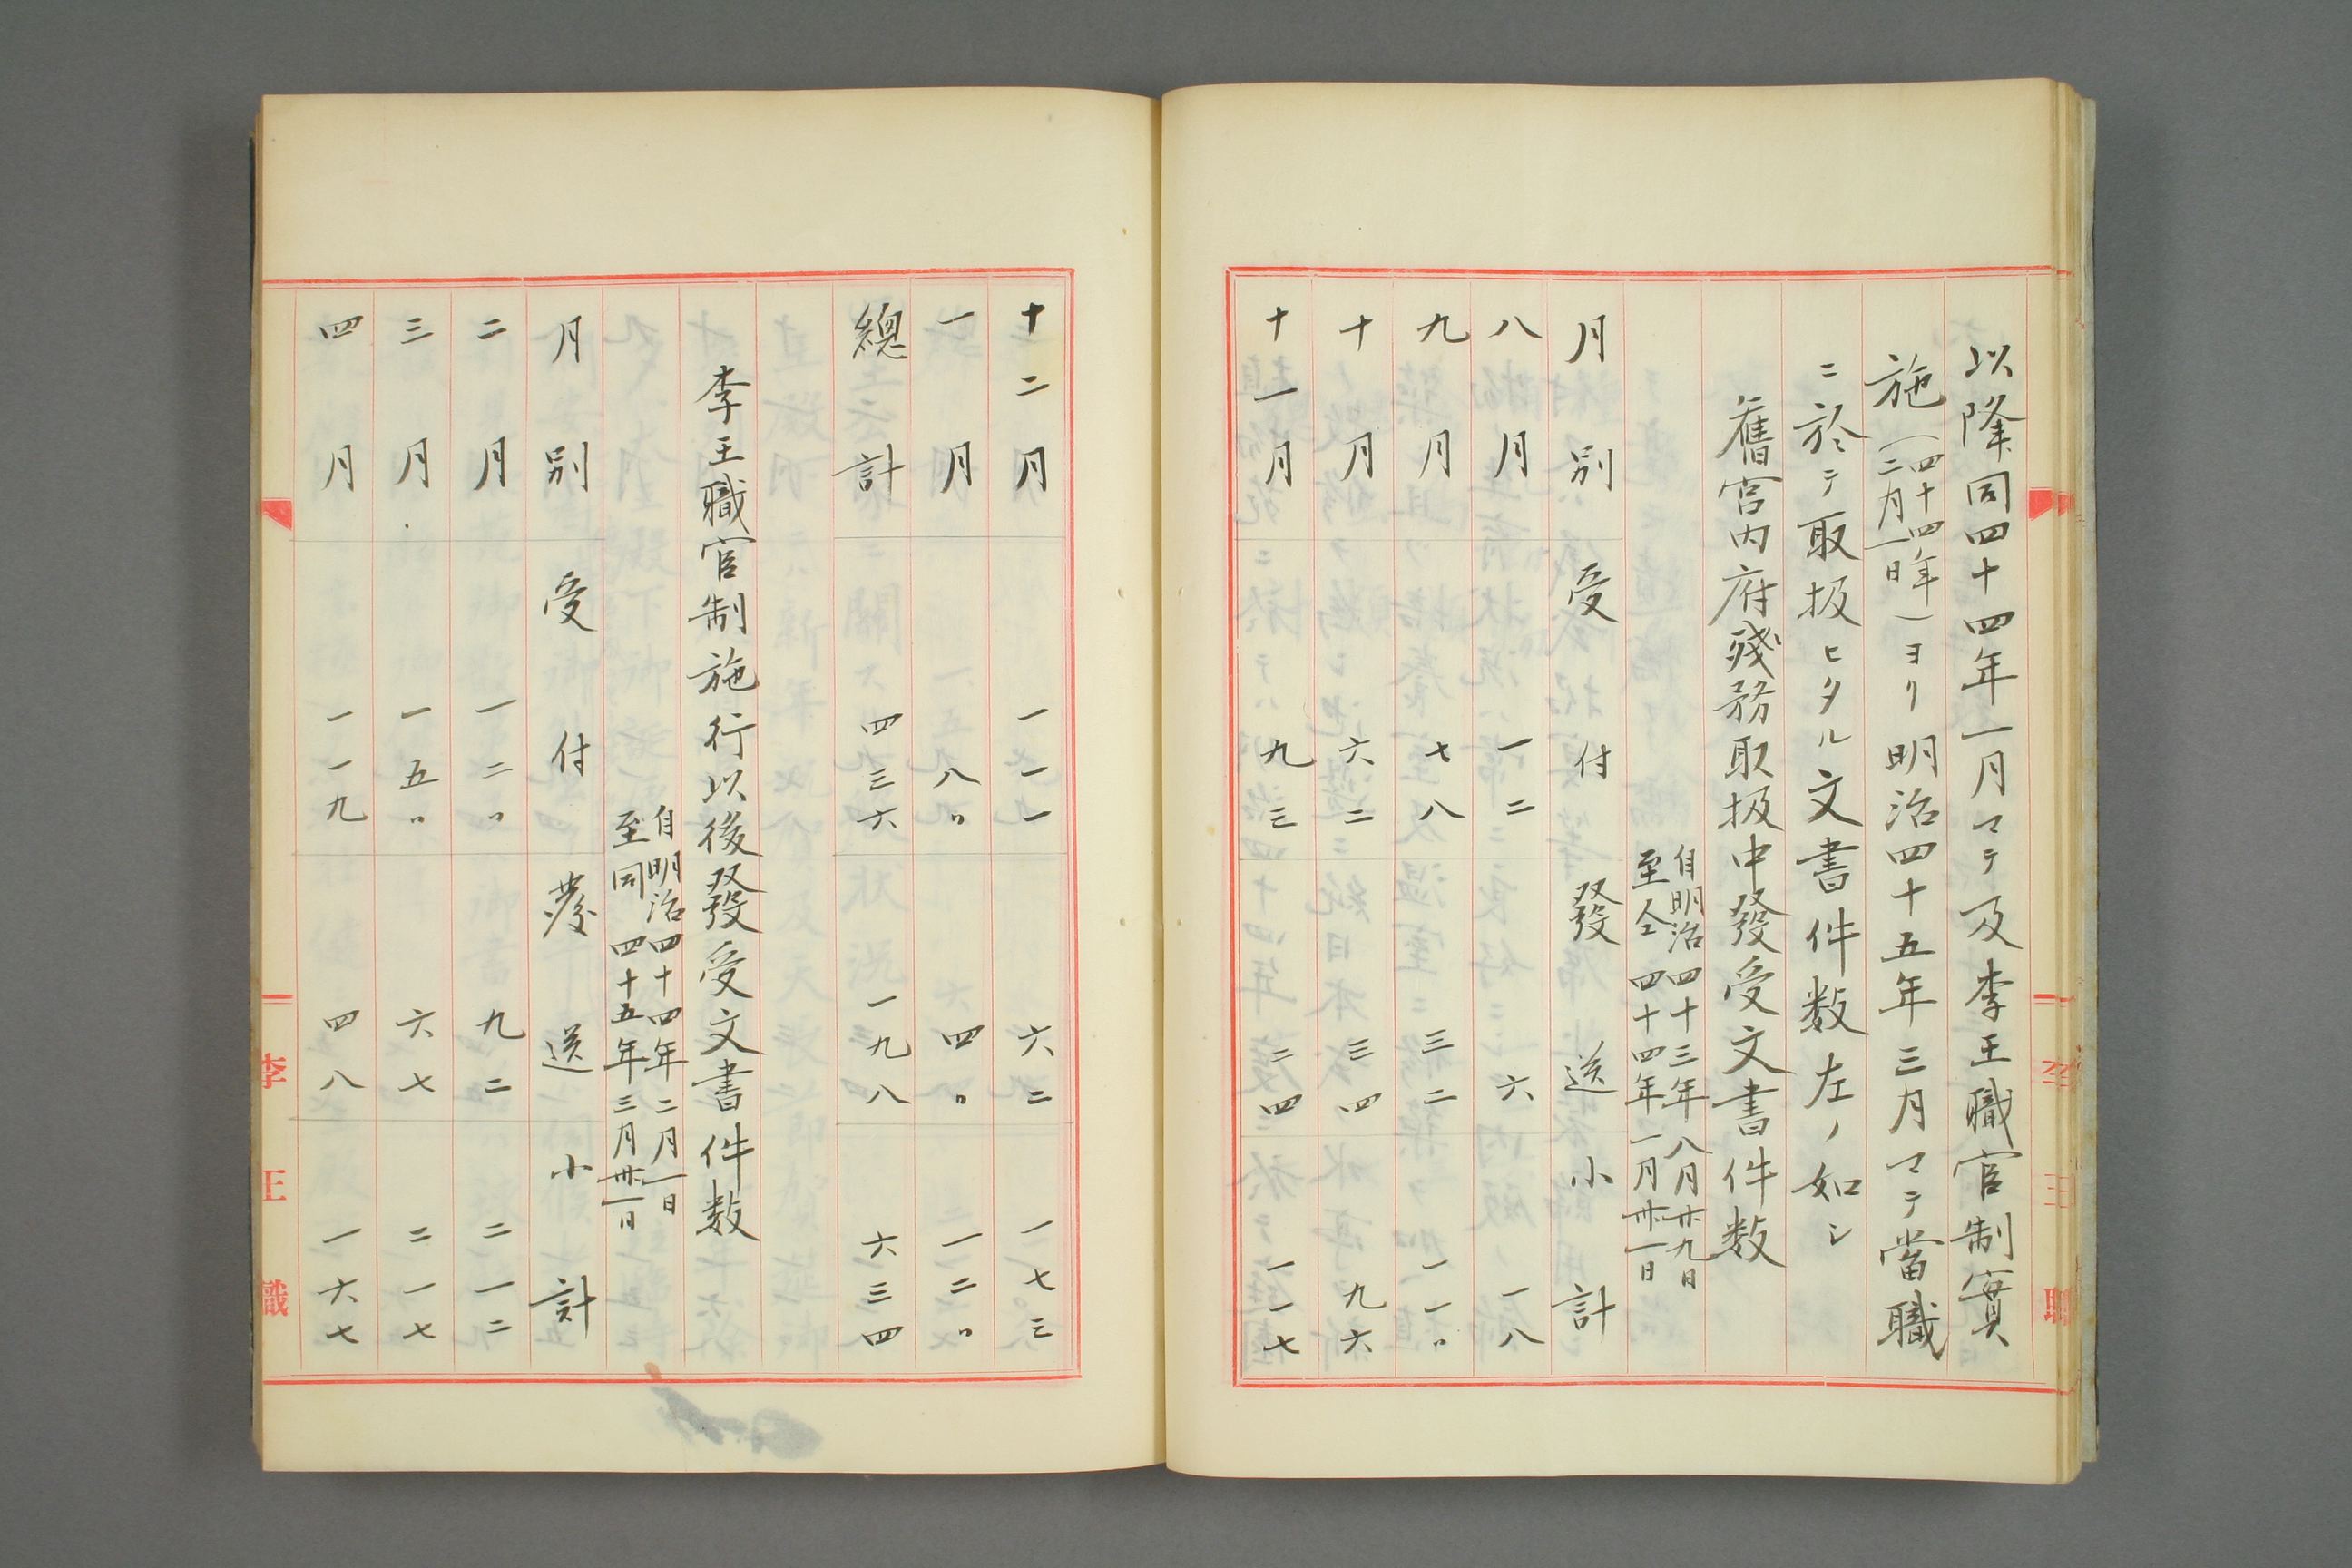 以降同四十四年一月マテ及李王職官制實
施(四十四年二月一日)ヨリ明治四十五年三月マテ當職
ニ於テ取扱ヒタル文書件数左ノ如シ
舊宮内府殘務取扱中發受文書件数
自明治四十三年八月廿九日
至仝四十四年一月卅一日
月別 受付 發送 小計
八月 一二 六 一八
九月 七八 三二 一一〇
十月 六二 三四 九六
十一月 九三 二四 一一七
李王職
十二月 一一一 六二 一七三
一月 八〇 四〇 一二〇
總計 四三六 一九八 六三四
李王職官制施行以後發受文書件数
自明治四十四年二月一日
至同四十五年三月卅一日
月別 受付 發送 小計
二月 一二〇 九二 二一二
三月 一五〇 六七 二一七
四月 一一九 四八 一六七
李王職